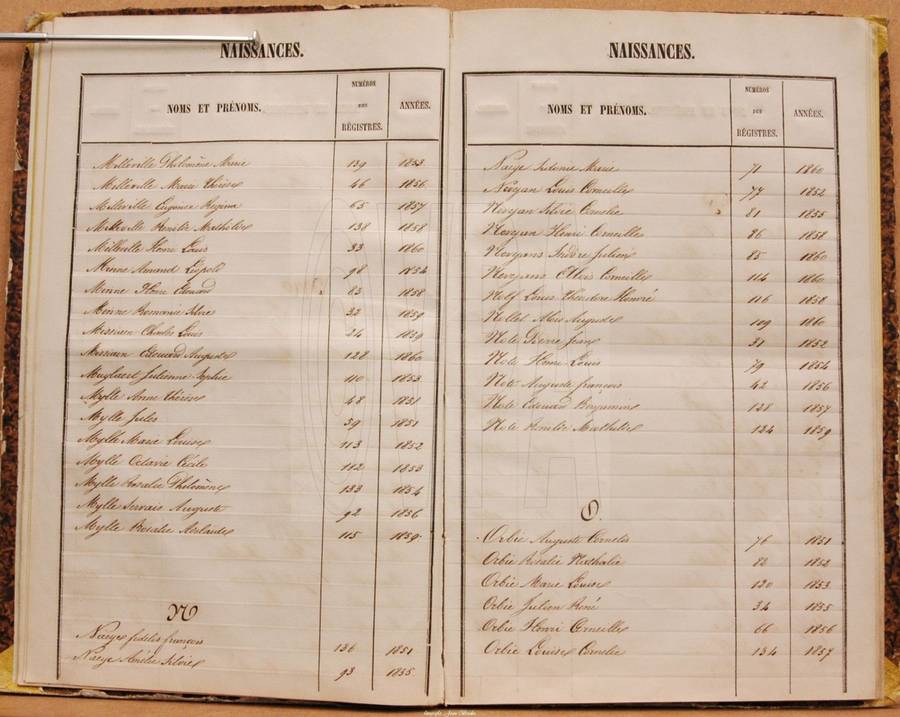 NAISSANCES.
NOMS ET PRÉNOMS. NUMÉROS DES RÉGISTRES. ANNÉES.
Milleville Philomène Marie 139 1853
Milleville Marie Thérèse 46 1856
Milleville Eugénie Régina 65 1857
Milleville Amélie Mathilde 138 1858
Milleville Henri Louis 33 1860
Minne Amand Léopold 98 1854
Minne Henri Edouard 83 1858
Minne Romanie Silvie 22 1859
Missiaen Charles Louis 24 1859
Missiaen Edouard Auguste 128 1860
Muylaert Julienne Sophie 110 1853
Mylle Anne Thérèse 48 1851
Mylle Jules 39 1851
Mylle Marie Louise 113 1852
Mylle Octavie Cécile 112 1853
Mylle Rosalie Philomène 133 1854
Mylle Servais Auguste 92 1856
Mylle Rosalie Adelaïde 115 1859
N
Naeye fidelis françois 136 1851
Naeye Amélie Silvie 93 1855
NAISSANCES.
NOMS ET PRÉNOMS. NUMÉROS DES RÉGISTRES. ANNÉES.
Naeye Sidonie Marie 71 1860
Louis Corneille 77 1852
Silvie Cornélie 81 1855
Henri Corneille 96 1858
Julien 85 1860
Corneille 114 1860
Nolf Louis Théodore Honoré 116 1858
Aloïs Auguste 109 1860
Note Pierre Jean 31 1852
Note Henri Louis 79 1854
Note Auguste françois 42 1856
Note Edouard Benjamin 138 1857
Note Amélie Mathilde 134 1859
O.
Orbie Auguste Cornélis 76 1851
Orbie Rosalie Nathalie 82 1852
Orbie Marie Louise 130 1853
Orbie Julien René 34 1855
Orbie Henri Corneille 66 1856
Orbie Louise Cornélie 134 1857